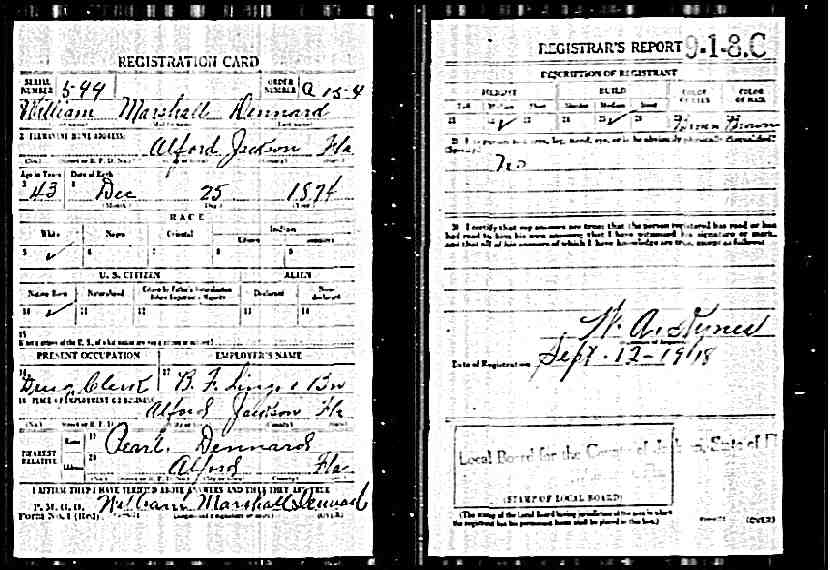 REGISTRATION CARD
SERIAL NUMBER 599 ORDER NUMBER
William Marshall Dennard
PERMANENT HOME ADDRESS:
Alford Jackson Fla
Age in Years Date of Birth
43 Dec 25 1874
(Month) (Day) (Year)
RACE
White Negro Oriental Indian
Citizen
5 ✓ 6 7 8 9
U. S. CITIZEN ALIEN
Native Born Naturalized Declarant
10 ✓ 11 12 13 14
15
PRESENT OCCUPATION EMPLOYER'S NAME
16 Drug Clerk 17 B. F.
18 PLACE OF EMPLOYMENT OR BUSINESS
Alford Jackson Fla
NEAREST RELATIVE Name 19 Pearl Dennard
Address 20 Alford Fla
I AFFIRM THAT I HAVE VERIFIED ABOVE ANSWERS AND THAT THEY ARE TRUE
P. M. G. O.
Form No. 1 (Red) William Marshall Dennard (OVER)
REGISTRAR'S REPORT 9-1-8.C
DESCRIPTION OF REGISTRANT
HEIGHT BUILD COLOR OF EYES COLOR OF HAIR
Tall Medium Short Slender Medium Stout
21 22 ✓ 23 24 25 ✓ 26 27 Brown 28 Brown
29 Has person lost arm, leg, hand, eye, or is he obviously physically disqualified?
(Specify.)
No
30 I certify that my answers are true; that the person registered has read or has
had read to him his own answers; that I have witnessed his signature or mark,
and that all of his answers of which I have knowledge are true, except as follows:
W. A.
Date of Registration Sept. 12-1918
Local Board for the County of Jackson, State of Fl
(STAMP OF LOCAL BOARD)
(The stamp of the Local Board having jurisdiction of the area in which
the registrant has his permanent home shall be placed in this box.)
(OVER)